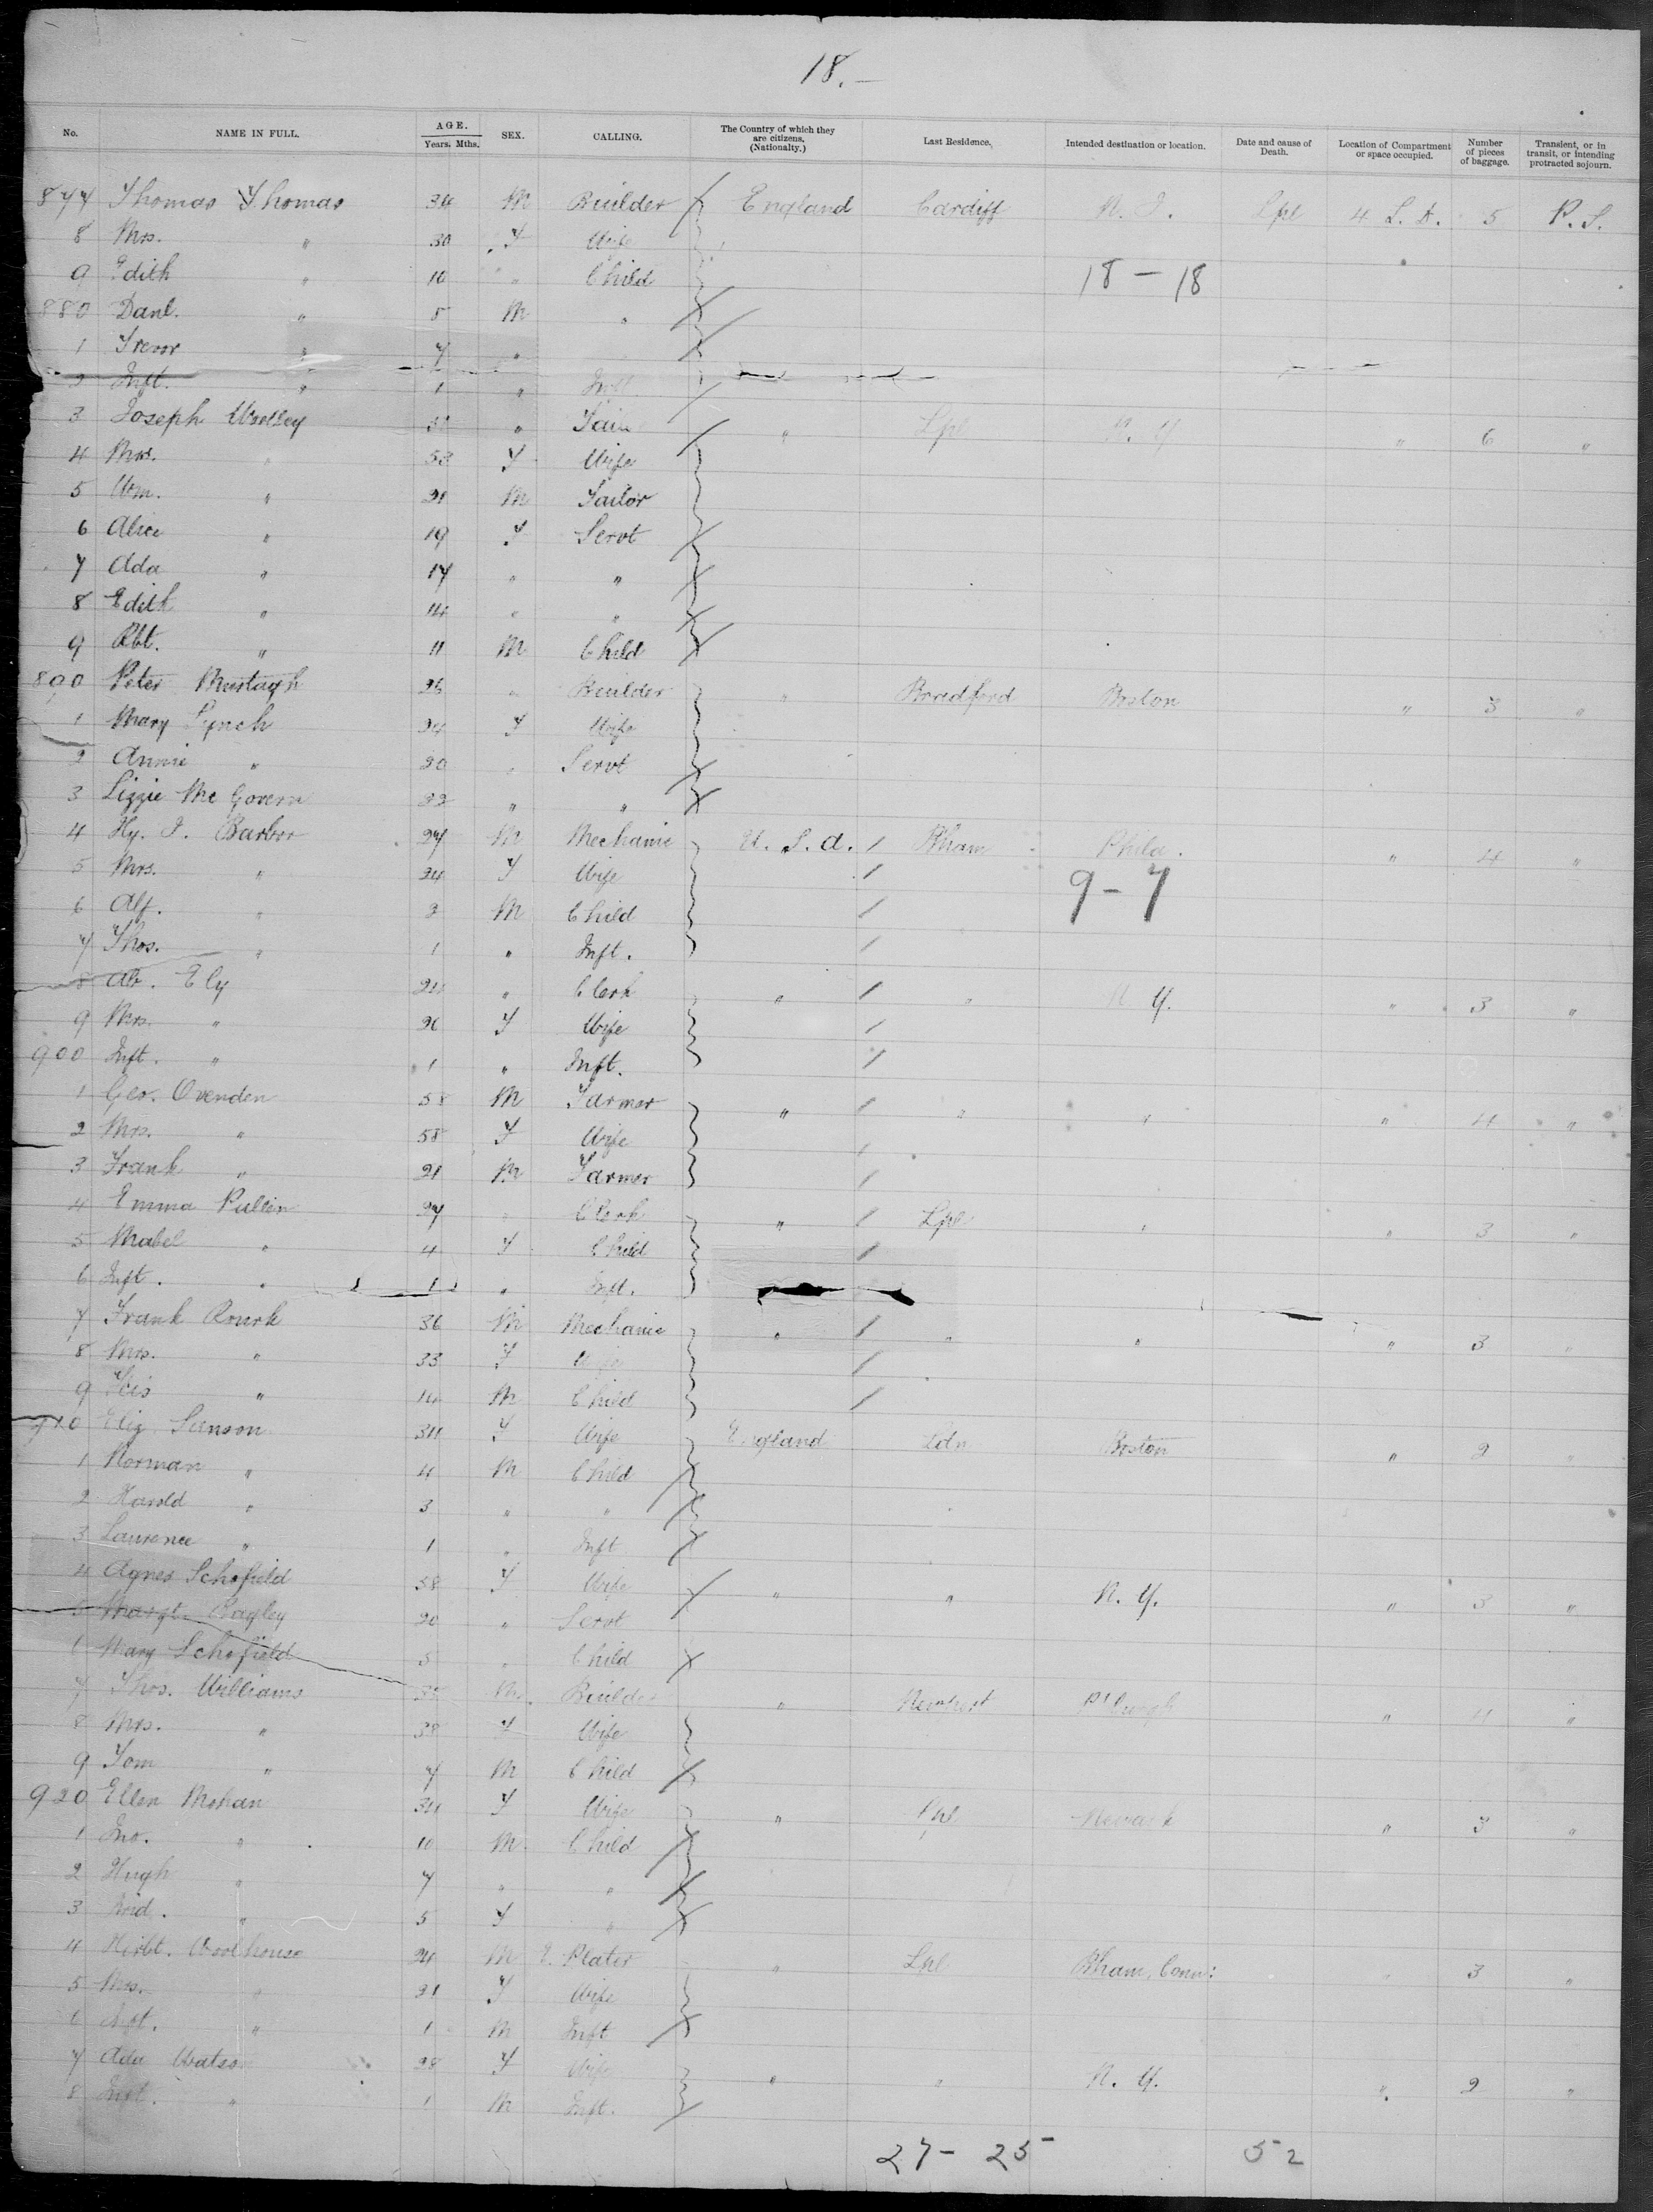 18.-
No. NAME IN FULL. AGE. Years. Mths. SEX. CALLING. The Country of which they are citizens. (Nationalty.) Last Residence. Intended destination or location. Date and cause of Death. Location of Compartment or space occupied. Number of pieces of baggage. Transient, or in transit, or intending protracted sojourn.
877 Thomas Thomas 34 M Builder England Cardiff Lpl 5 P. S.
8 Mrs. " 30 F Wife
9 Edith " 10 " Child 18 - 18
880 Danl. " 5 M "
1 Trevor " 7 "
2 Inft. " 1 " Inft
3 Joseph " Lpl N. Y " 6 "
4 Mrs. " 53 F Wife
5 Wm. " 21 M Tailor
6 Alice " 19 F Servt
7 Ada " 17 " "
8 Edith " 14 " "
9 Rbt. " 11 M Child
890 Peter Murtagh 26 " Builder " Bradford Boston " 3 "
1 Mary Lynch 24 F Wife
2 Annie " 20 " Servt
3 Lizzie Mc Govern 22 " "
4 Hy. J. Barber 27 M Mechanic U. S. A. Bham Phila. " 4 "
5 Mrs. " 24 F Wife 9 - 7
6 Alf. " M Child
7 Thos. " 1 " Inft.
8 Ely " Clerk " " N Y. " 3 "
9 Mrs. " F Wife
900 Inft. " 1 " Inft.
1 Geo. Ovenden 58 M Farmer " " " " 4 "
2 Mrs. " 58 F Wife
3 Frank " 21 M Farmer
4 Emma Pullen 27 " Clerk " Lpl " " 3 "
5 Mabel " 4 F Child
6 Inft. " 1 " Inft.
7 Frank Rourk 36 M Mechanic " " " " 3 "
8 Mrs. " 33 F Wife
9 " M Child
910 Eliz Sanson 34 F Wife England Ldn Boston " 2 "
1 Norman " 4 M Child
2 Harold " 3 " "
3 Laurence " 1 " Inft
4 Agnes Schofield 58 F Wife " " N. Y. " 3 "
5 Margt. 20 " Servt
6 Mary Schofield 5 " Child
7 Thos. Williams M. Builder " Newport " 4 "
8 Mrs. " 38 F Wife
9 Tom " 7 M Child
920 Ellen Mohan 34 F Wife " Lpl Newark " 3 "
1 Jno. " 10 M Child
2 Hugh " 7 " "
3 Brid. " 5 F "
4 Herbt. Woolhouse 24 M E. Plater " Lpl Bham, Conn: " 3 "
5 Mrs. " 21 F Wife
6 Inft. " 1 M Inft
7 Ada Watson 28 F Wife " " N. Y. " 2 "
8 Inft. " 1 M Inft.
27 - 25 52